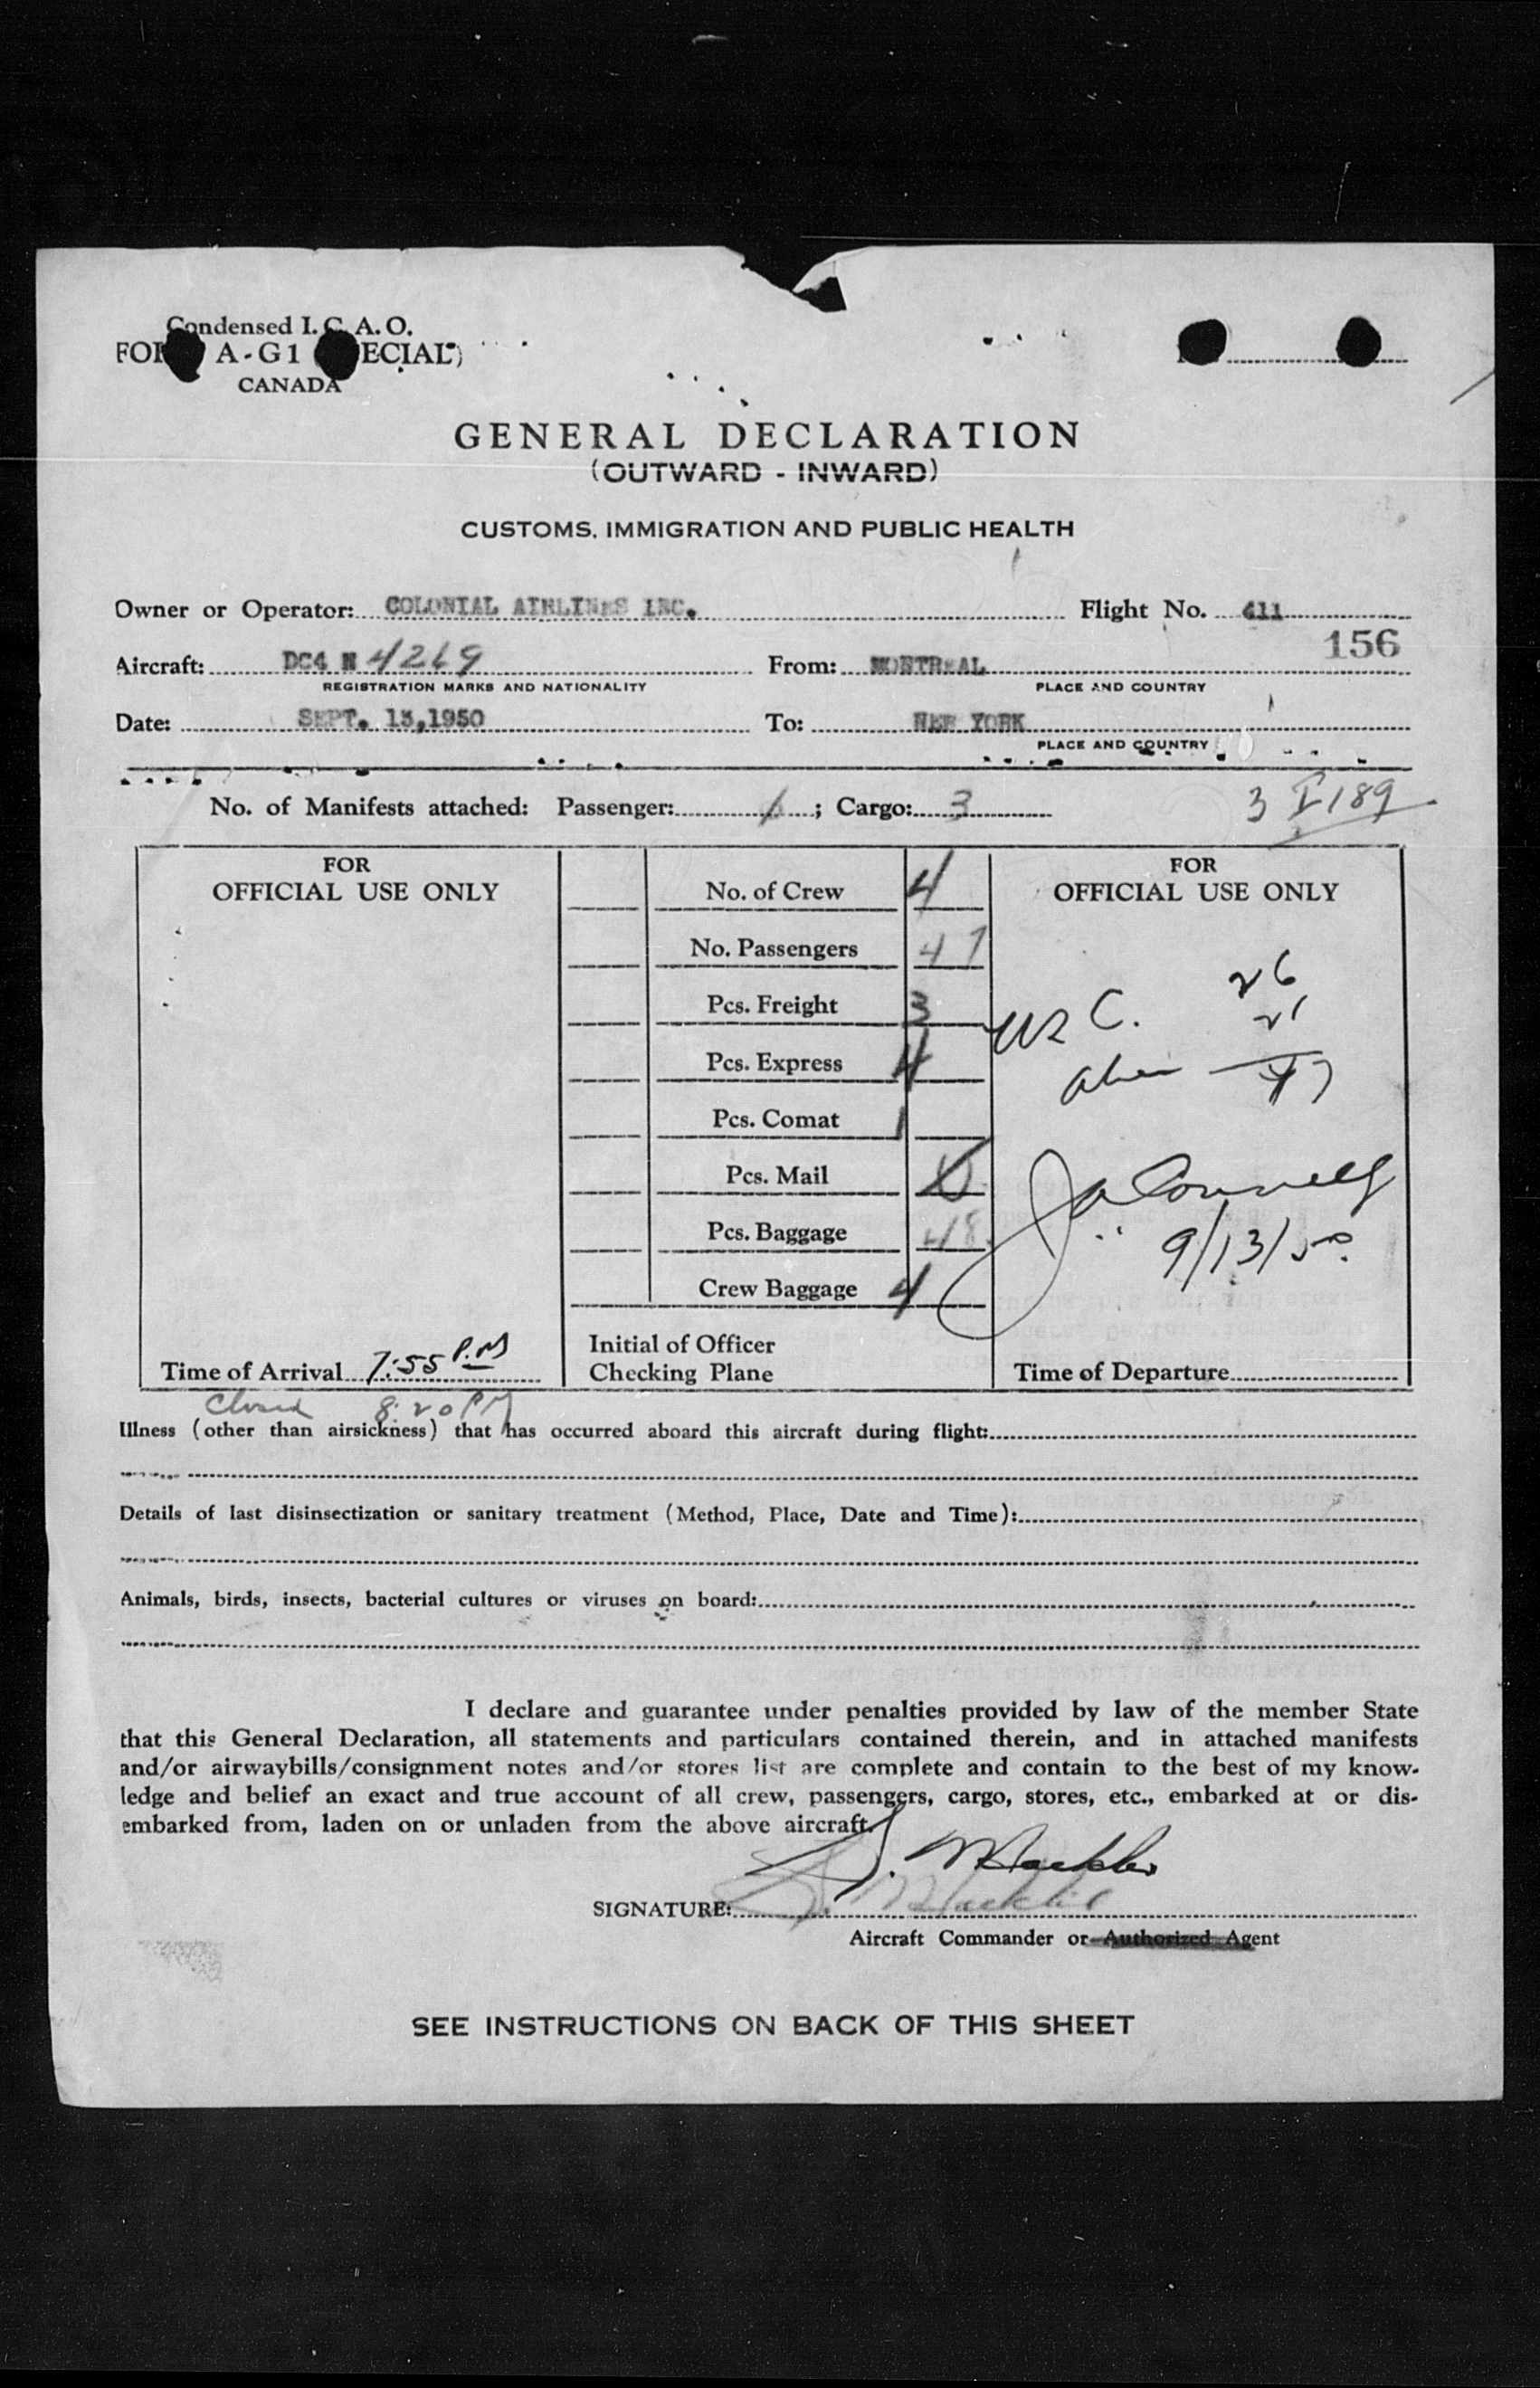 Condensed I. C. A. O.
A-G1
CANADA
GENERAL DECLARATION
(OUTWARD - INWARD)
CUSTOMS, IMMIGRATION AND PUBLIC HEALTH
Owner or Operator: COLONIAL AIRLINES INC. Flight No. 411
156
Aircraft: DC4 N 4269 From: MONTREAL
REGISTRATION MARKS AND NATIONALITY PLACE AND COUNTRY
Date: SEPT. 13,1950 To: NEW YORK
PLACE AND COUNTRY
No. of Manifests attached: Passenger: 1; Cargo: 3
FOR
OFFICIAL USE ONLY
No. of Crew 4
No. Passengers 47
Pcs. Freight 3
Pcs. Express 4
Pcs. Comat 1
Pcs. Mail
Pcs. Baggage 48
Crew Baggage 4
Initial of Officer
Checking Plane
Time of Arrival 7:55 P.M
Closed 8:20 PM
FOR
OFFICIAL USE ONLY
US C. 26
21
alien 47
9/13/50
Time of Departure
Illness (other than airsickness) that has occurred aboard this aircraft during flight:
Details of last disinsectization or sanitary treatment (Method, Place, Date and Time):
Animals, birds, insects, bacterial cultures or viruses on board:
I declare and guarantee under penalties provided by law of the member State
that this General Declaration, all statements and particulars contained therein, and in attached manifests
and/or airwaybills/consignment notes and/or stores list are complete and contain to the best of my know-
ledge and belief an exact and true account of all crew, passengers, cargo, stores, etc., embarked at or dis-
embarked from, laden on or unladen from the above aircraft.
SIGNATURE:
Aircraft Commander or Authorized Agent
SEE INSTRUCTIONS ON BACK OF THIS SHEET